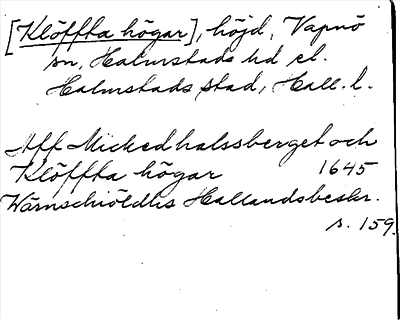 [Klöffta högar], höjd, Vapnö
sn, Halmstads hd el.
Halmstads stad, Hall. l.
Aff Mickedhalssberget och
Klöffta högar 1645
Wärnschiöldhs Hallandsbeskr.
s. 159.